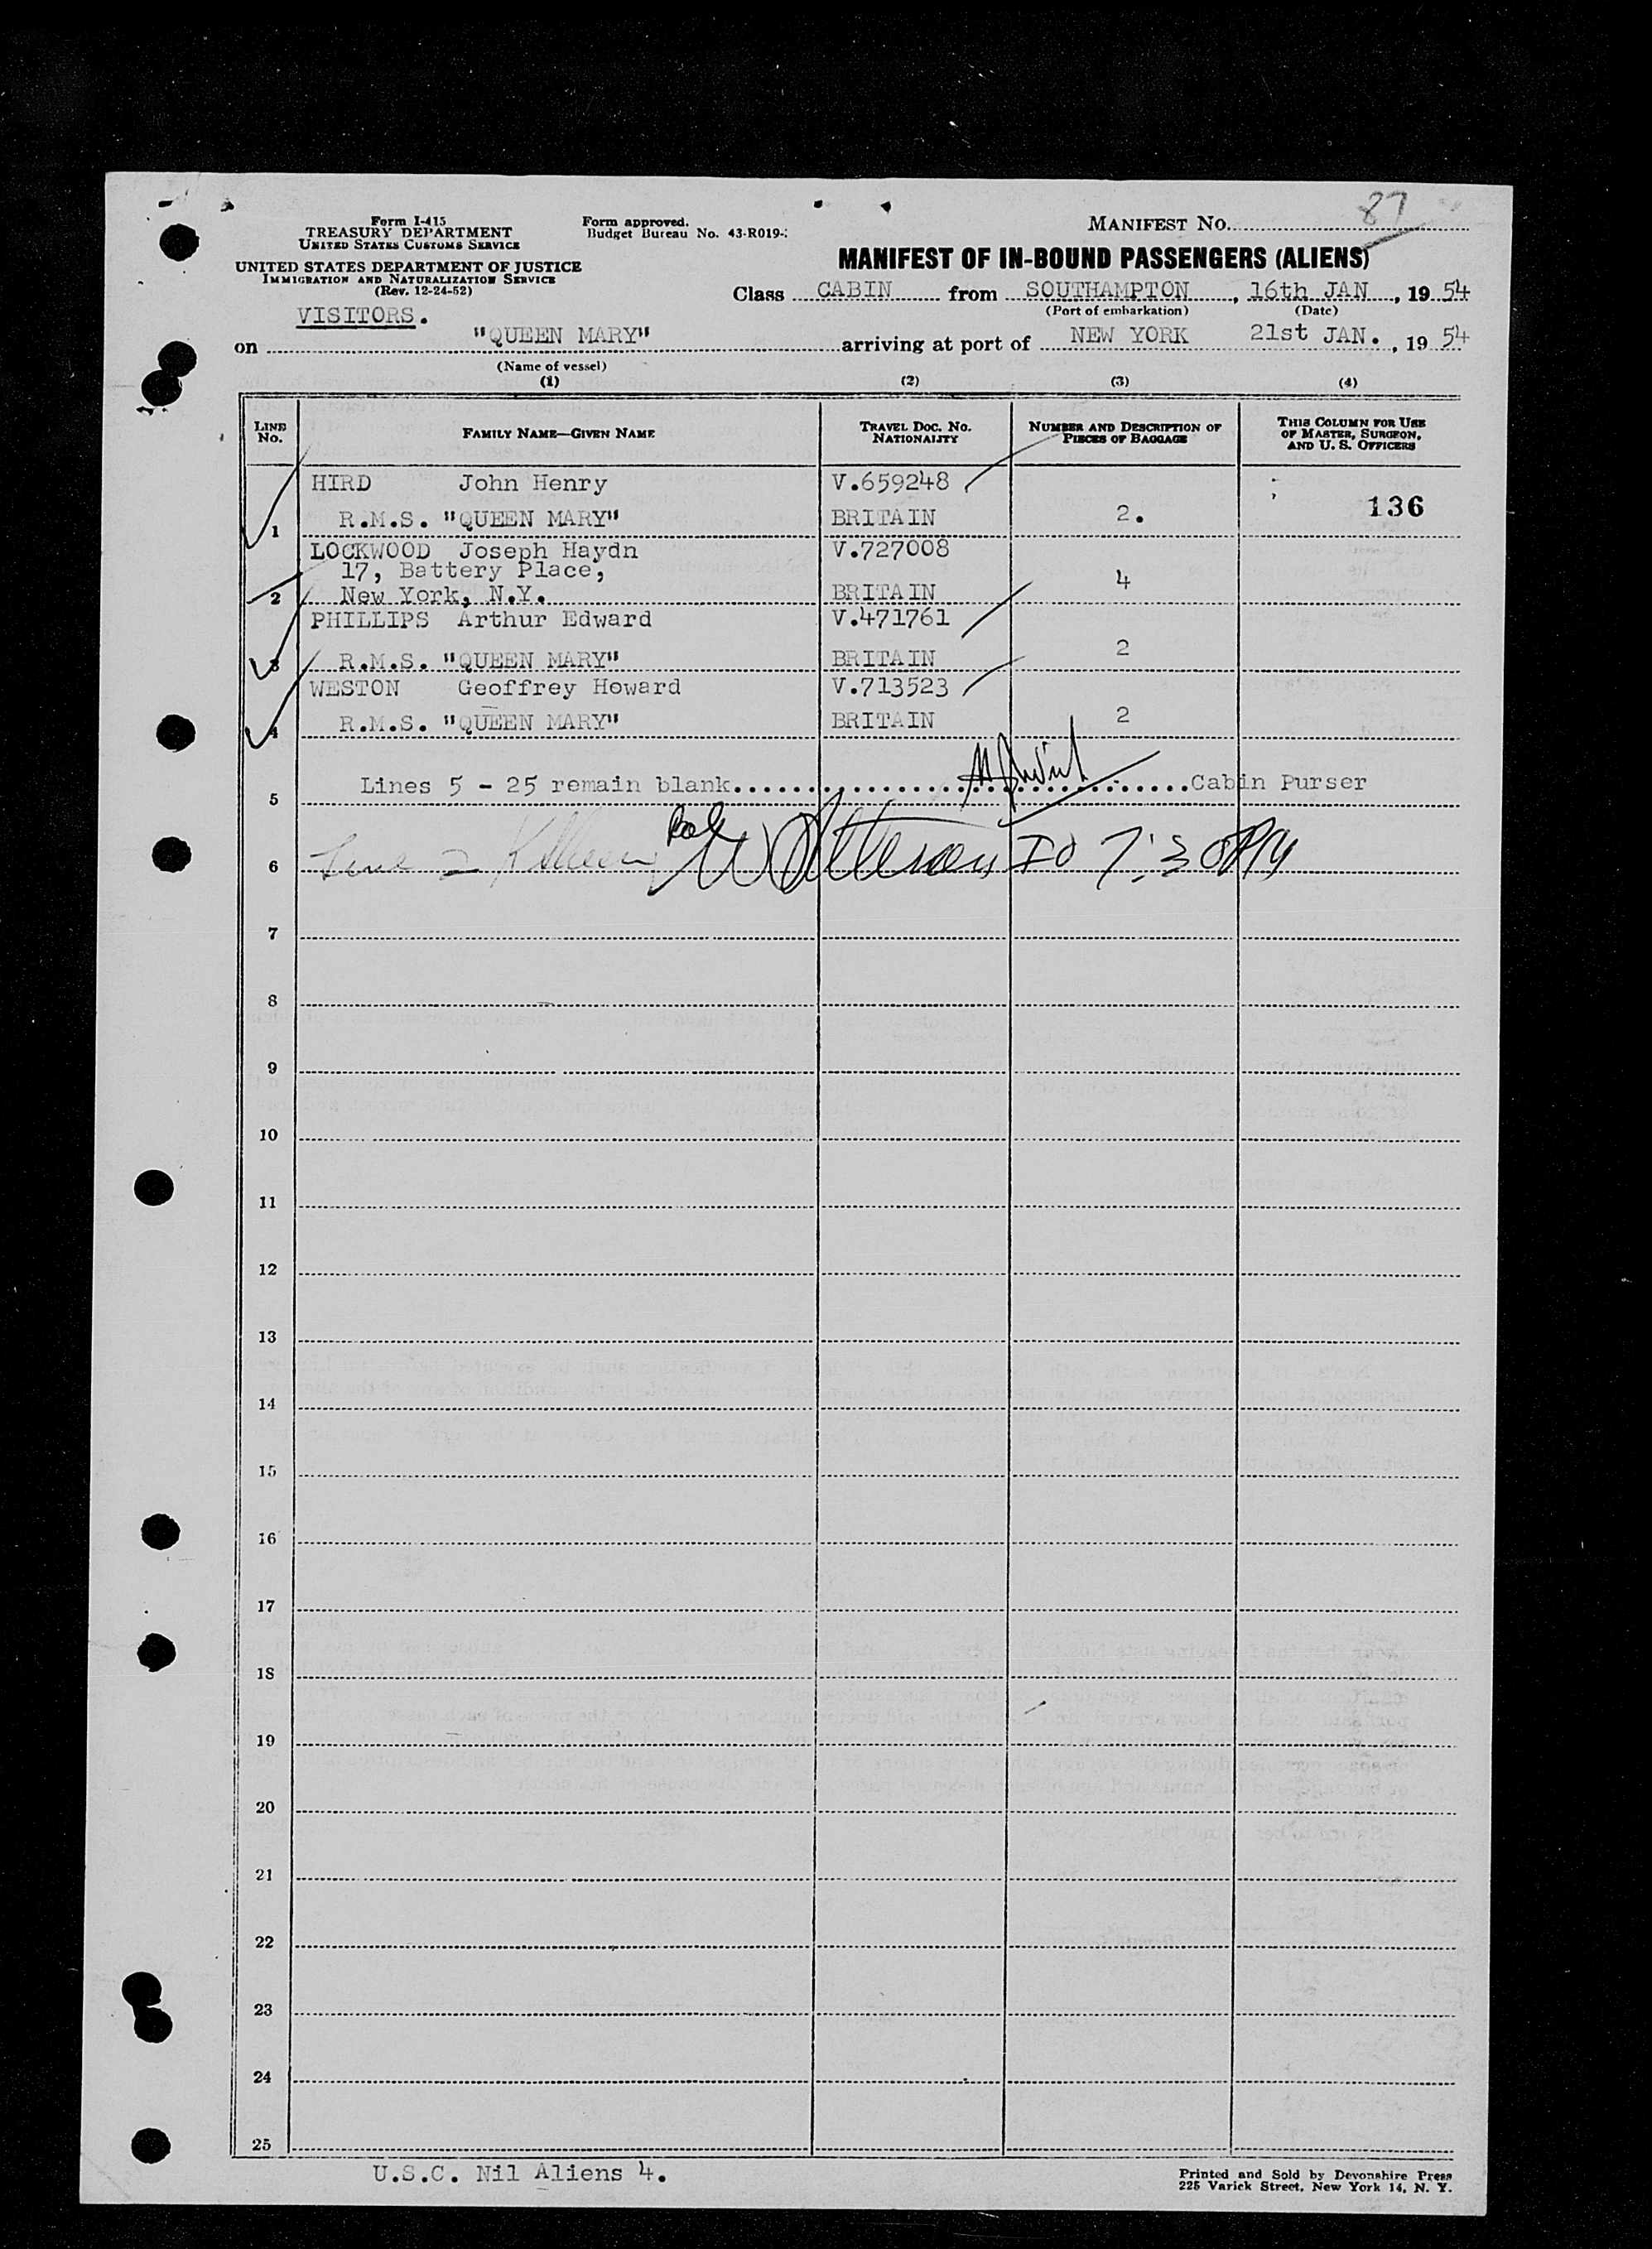 Form I-415
TREASURY DEPARTMENT
UNITED STATES CUSTOMS SERVICE
Form approved.
Budget Bureau No. 43-R019-
MANIFEST NO. 87
UNITED STATES DEPARTMENT OF JUSTICE
IMMIGRATION AND NATURALIZATION SERVICE
(Rev. 12-24-52)
MANIFEST OF IN-BOUND PASSENGERS (ALIENS)
Class CABIN from SOUTHAMPTON, 16th JAN, 19 54
(Port of embarkation) (Date)
VISITORS.
on "QUEEN MARY" arriving at port of NEW YORK 21st JAN., 19 54
(Name of vessel)
(1) (2) (3) (4)
LINE NO. FAMILY NAME—GIVEN NAME TRAVEL DOC. NO. NATIONALITY NUMBER AND DESCRIPTION OF PIECES OF BAGGAGE THIS COLUMN FOR USE OF MASTER, SURGEON, AND U. S. OFFICERS
HIRD John Henry V.659248
1 R.M.S. "QUEEN MARY" BRITAIN 2. 136
LOCKWOOD Joseph Haydn V.727008
17, Battery Place,
2 New York, N.Y. BRITAIN 4
PHILLIPS Arthur Edward V.471761
3 R.M.S. "QUEEN MARY" BRITAIN 2
WESTON Geoffrey Howard V.713523
4 R.M.S. "QUEEN MARY" BRITAIN 2
5 Lines 5 - 25 remain blank Cabin Purser
6 Line 2
7
8
9
10
11
12
13
14
15
16
17
18
19
20
21
22
23
24
25
U.S.C. Nil Aliens 4.
Printed and Sold by Devonshire Press
225 Varick Street, New York 14, N. Y.